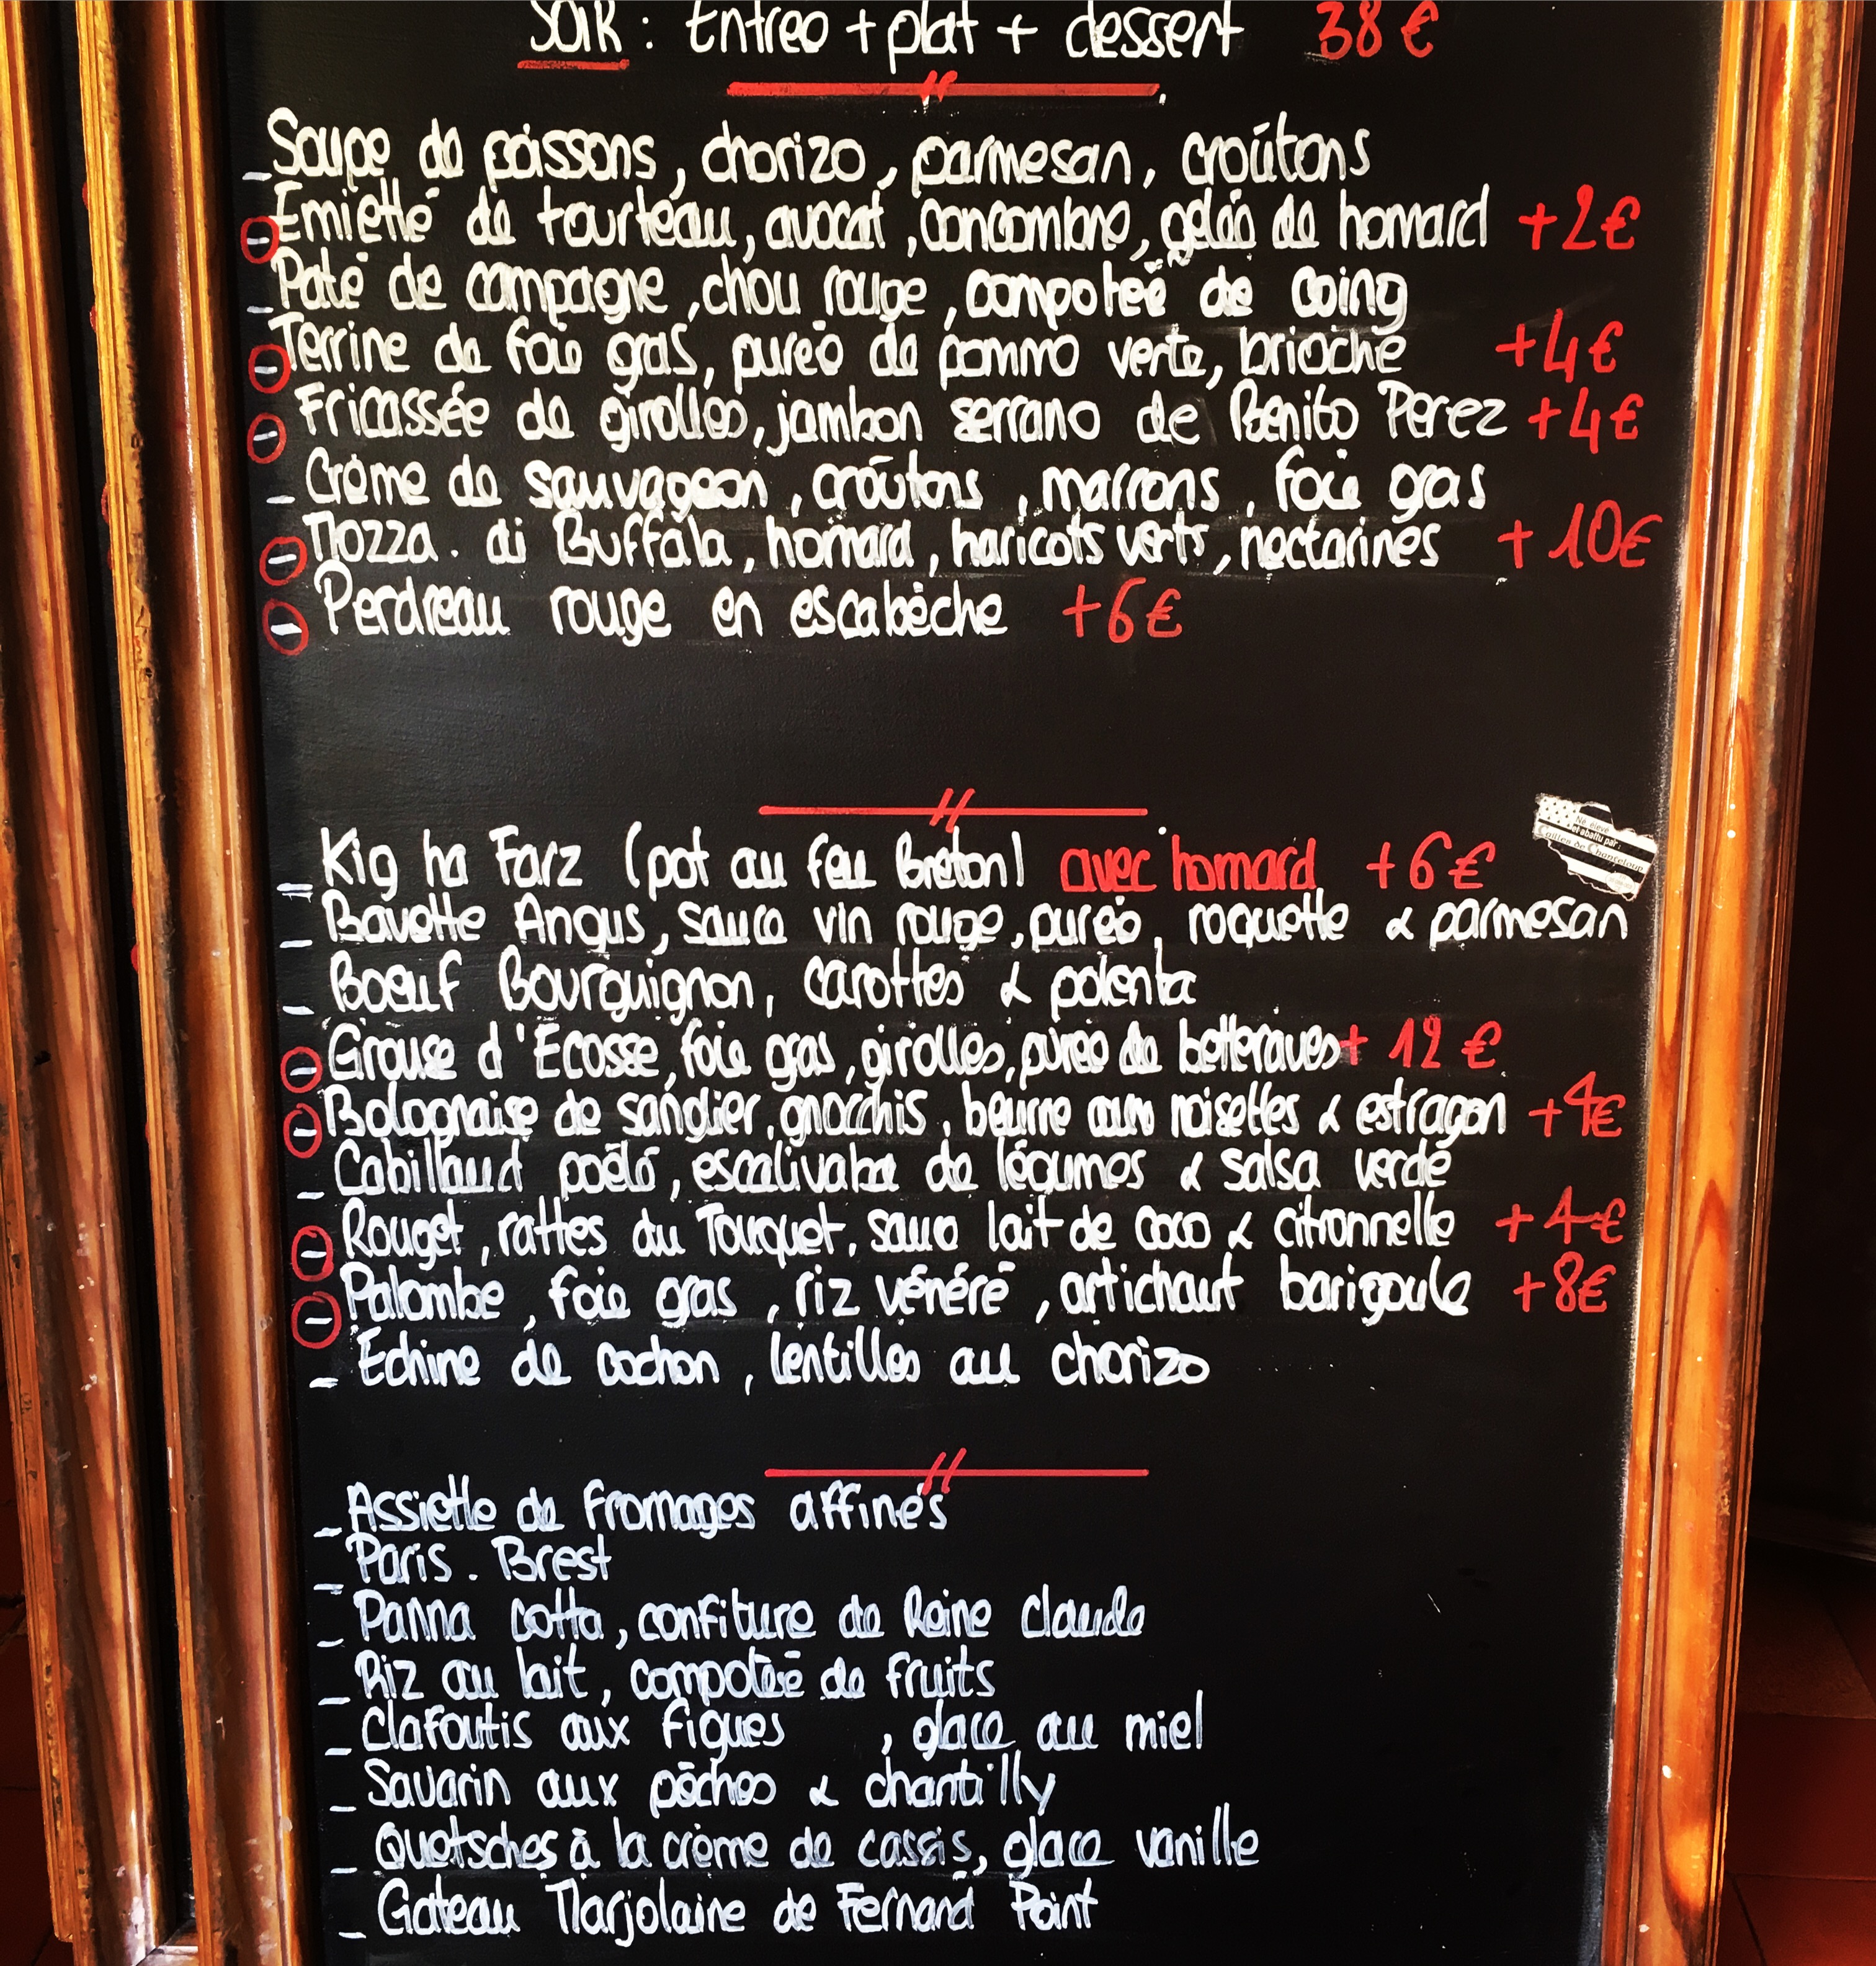 SOIR : Entrée + plat + dessert 38€
_ Soupe de poissons, chorizo, parmesan, croûtons
- Emietté de tourteau, avocat, concombre, gelée de homard +2€
_ Paté de campagne, chou rouge, compotée de coing
- Terrine de foie gras, purée de pomme verte, brioche +4€
- Fricassée de girolles, jambon serrano de Benito Perez +4€
_ Crème de sauvageon, croûtons, marrons, foie gras
- Mozza. di Buffala, homard, haricots verts, nectarines +10€
- Perdreau rouge en escabèche +6€
Né, élevé
et abattu par:
Cailles de Chanteloup
= Kig ha Farz (pot au feu Breton) avec homard +6€
_ Bavette Angus, sauce vin rouge, purée, roquette & parmesan
_ Boeuf Bourguignon, carottes & polenta
- Grouse d'Ecosse, foie gras, girolles, purée de betteraves +12€
- Bolognaise de sanglier, gnocchis, beurre aux noisettes & estragon +4€
_ Cabillaud poêlé, escalivada de légumes & salsa verde
- Rouget, rattes du Touquet, sauce lait de coco & citronnelle +4€
- Palombe, foie gras, riz vénéré, artichaut barigoule +8€
_ Echine de cochon, lentilles au chorizo
_ Assiette de fromages affinés
_ Paris. Brest
_ Panna cotta, confiture de Reine Claude
_ Riz au lait, compotée de fruits
_ Clafoutis aux figues , glace au miel
_ Savarin aux pêches & chantilly
_ Quetsches à la crème de cassis, glace vanille
_ Gateau Marjolaine de Fernand Point